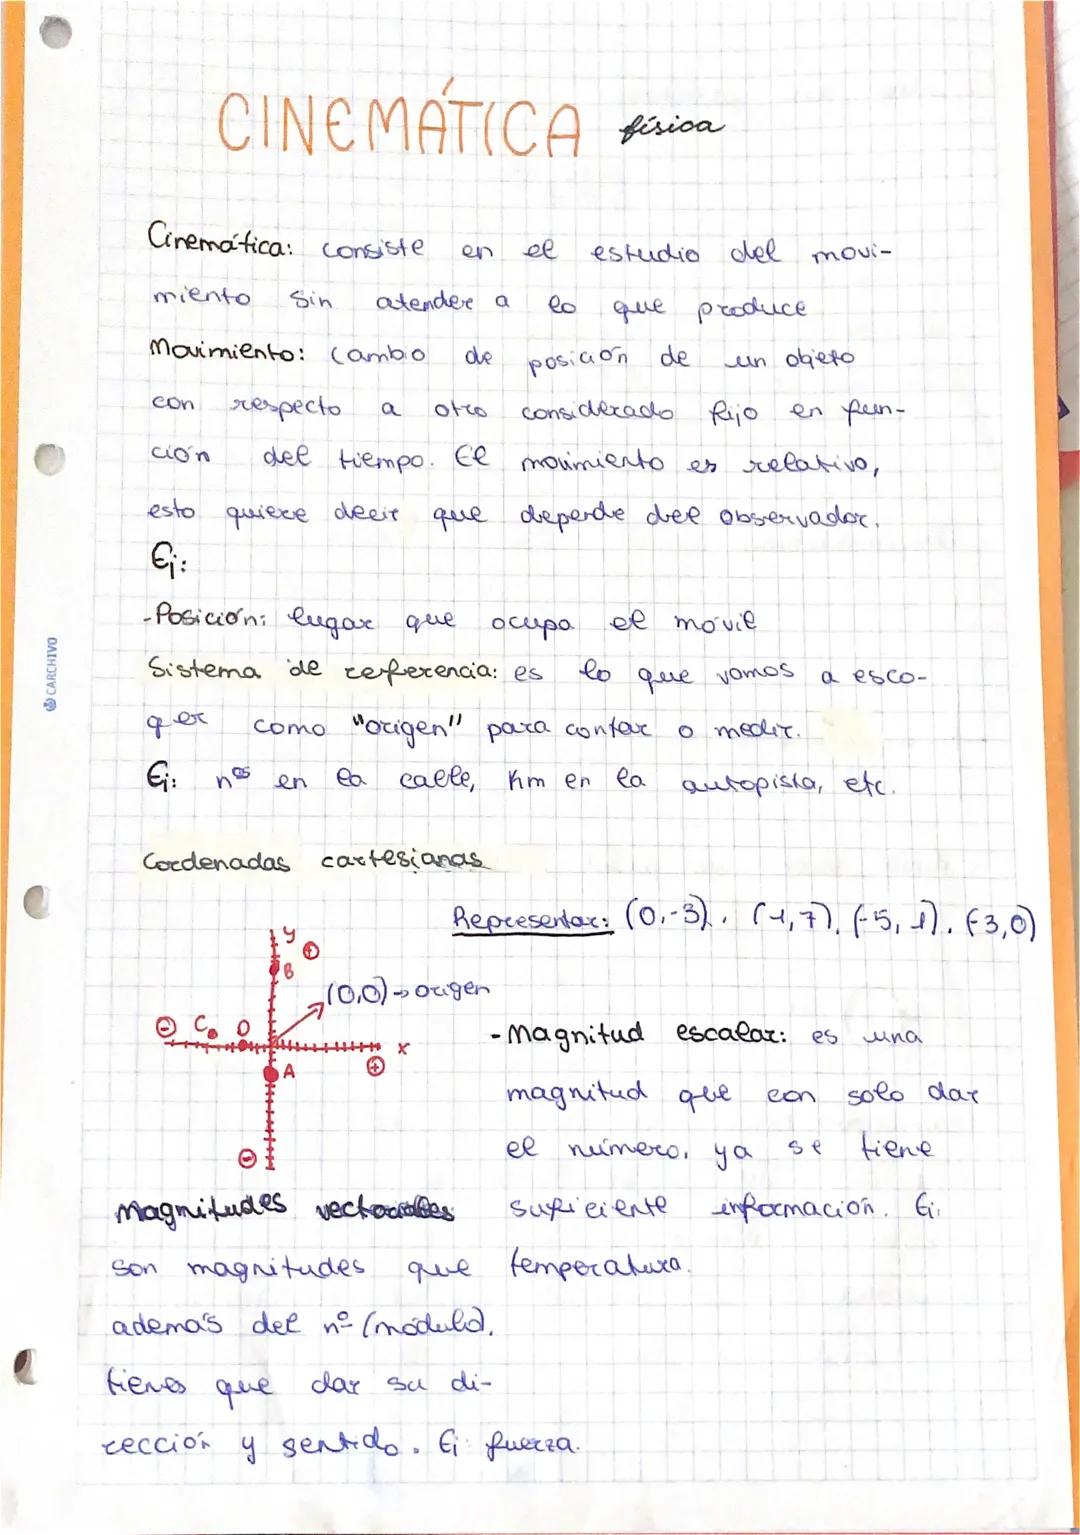 CINEMÁTICA física
Cinemática: consiste en el estudio del movi-
miento sin atender a lo que produce
Movimiento: Cambio de posición de un objeto
con respecto a otro considerado fijo en fun-
ción del tiempo. El movimiento es relativo,
esto quiere decir que depende del observador.
Ej:
-Posición: lugar que ocupa el móvil
Sistema de referencia: es lo que vamos a esco-
ger como "origen" para contar o medir.
Ej: nos en la calle, Km en la autopista, etc.
Cordenadas cartesianas
Representar: (0,-3), (-1,7), (-5,1), (-3,0)
y
+
B
(0,0)→origen
- C D
x
+
A
-
-Magnitud escalar: es una
magnitud que con solo dar
el número, ya se tiene
suficiente información. Ej:
temperatura.
Magnitudes vectoriales
son magnitudes que
además del nº (módulo),
tienes que dar su di-
rección y sentido. Ej: fuerza.
CARCHIVO